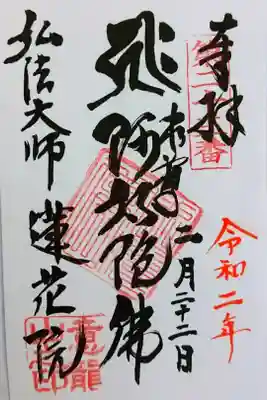 奉拝
令和二年
二月二十二日
本尊
阿弥陀佛
弘法大師
蓮花院